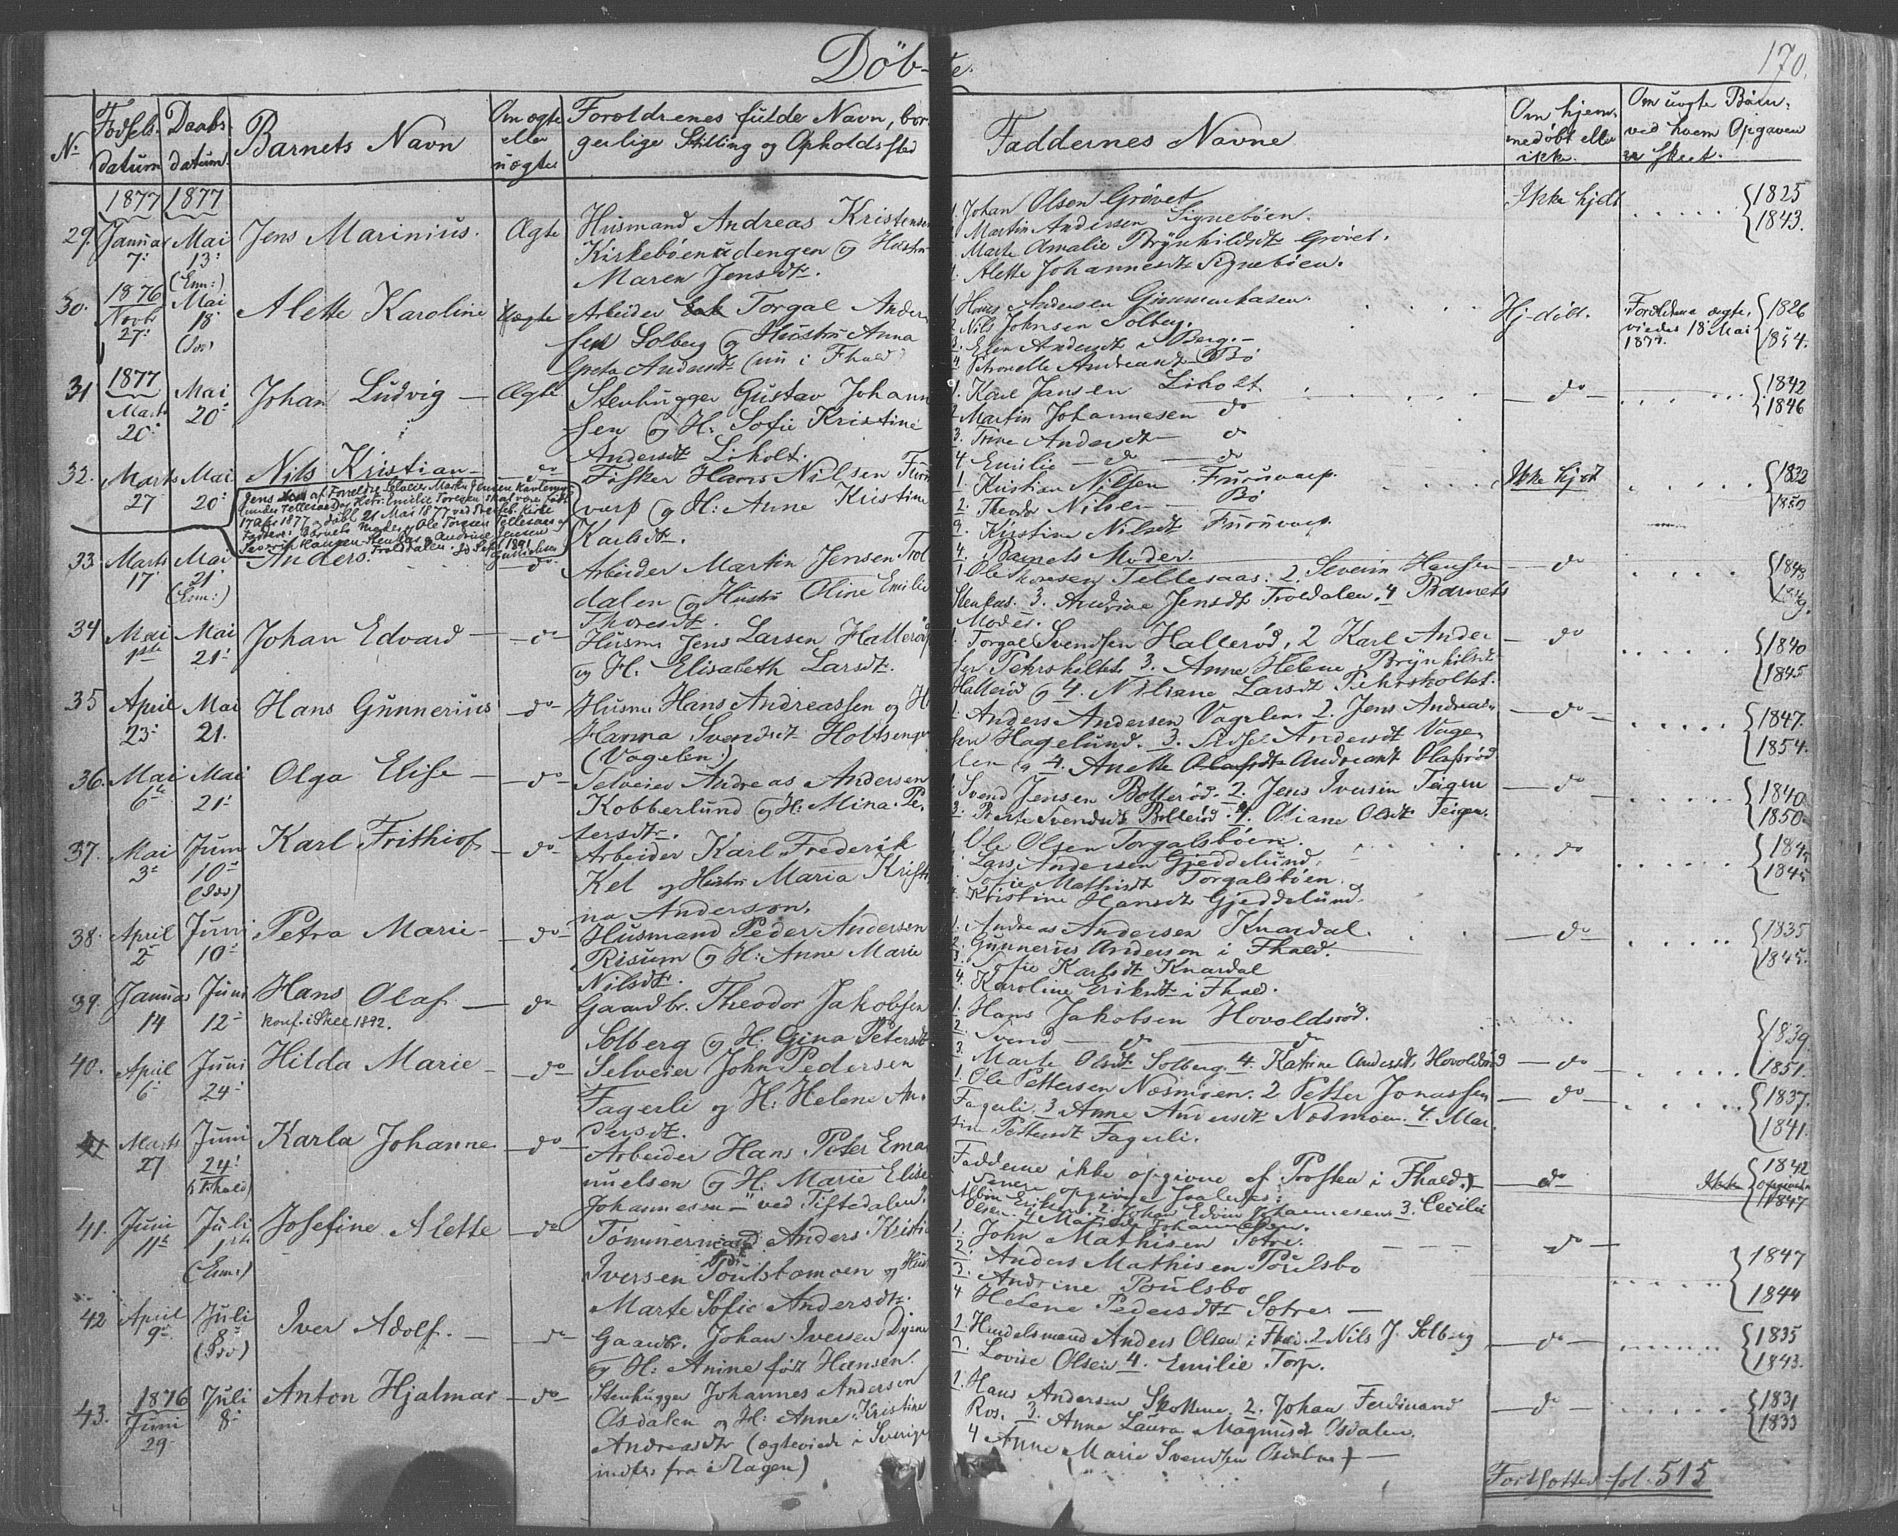 Döbte.
170.
N.
Fødsels-
datum
Daabs-
datum
Barnets Navn
Om ægte
eller
uægte
Forældrenes fulde Navn, bor-
gerlige Stilling og Opholdssted
Faddernes Navne
Om hjem-
medøbt eller
ikke.
Om uægte Børn,
ved hvem Opgaven
er skeet.
1877 1877
29. Januar 7: Mai 13: (Enn:) Jens Marinius. Ægte
Husmand Andreas Kristensen
Kirkebøen udengen og Hustru
Maren Jensdt.
1. Johan Olsen Grövet
Martin Andersen Signebøen.
Marte Amalie Brynhildsdt Grövet.
4. Alette Johannesdt Signebøen.
Ikke hjdt
1825
1843.
30. 1876 Novb 27: Mai 18 Alette Karoline Uægte
Arbeider Torgal Ander-
sen Solberg og Hustru Anna
Greta Andersdt (nu i Fhald)
Hans Andersen
2. Nils Johnsen Solberg.
3. Elen Andersdt i Berg.
4 Petronelle Andreasdt Bø
Hj-döbt.
Forældrene ægte-
viedes 18 Mai
1877.
1826
1854.
31 1877 Marts 20: Mai 20: Johan Ludvig Ægte
Stenhugger Gustav Johann-
sen og H: Sofie Kristine
Andersdt Liholt.
1. Karl Jansen Liholt
2 Martin Johannesen do
3. Trine Andersdt do
4 Emilie do do
do
1842
1846
32. Marts 27 Mai 20: Nils Kristian do
Fisker Hans Nilsen Furu-
varp og H: Anne Kristine
Karlsdt.
1. Kristian Nilsen Furuvarp.
2. Theodor Nilsen Bø
3. Kirstine Nilsdt Furuvarp.
4. Barnets Moder.
Ikke hjdt
1832
1850
33. Marts 17: Mai 21: (Enn:) Anders. do
Arbeider Martin Jensen Trol-
dalen og Hustru Oline Emilie
Thoresdt.
1 Ole Thoresen Tellesaas. 2. Severin Hansen
Stenaas. 3. Andrine Jensdt Troldalen. 4 Barnets
Moder.
do
1848
34 Mai 1ste Mai 21: Johan Edvard do
Husm: Jens Larsen Halleröd
og H. Elisabeth Larsdt.
1. Torgal Svendsen Halleröd, 2 Karl Ander-
sen Pehrsholtet 3. Anne Helene Brynhilsdt
Halleröd og 4. Niliane Larsdt Pehrsholtet.
do
1840
1845
35 April 23: Mai 21. Hans Gunnerius do
Husm: Hans Andreassen og H
Hanna Svendsdt Holtseng
(Vagelen)
1. Anders Andersen Vagelen. 2. Jens Andreas-
sen Hagelund. 3. Andersdt Vage-
len og 4. Anette Andreasdt Olafsröd
do
1847.
1854.
36. Mai 6te Mai 21: Olga Elise do
Selveier Andreas Andersen
Kobberlund og H: Mina Pe-
tersdt.
1 Svend Jensen Bolleröd. 2. Jens Iversen Teigen
3. Berte Svendsdt Bolleröd. 4. Oliane Olsdt Teigen.
do
1840
1850
37. Mai 3: Juni 10: Karl Frithiof do
Arbeider Karl Frederik
Kel og Hustru Maria Kristi-
na Anderson.
Ole Olsen Torgalsbøen.
Lars Andersen Gjeddelund.
Sofie Mathisdt Torgalsbøen.
4. Kristine Hansdt Gjeddelund.
do
1845
1845
38. April 2 Juni 10: Petra Marie do
Husmand Peder Andersen
Risum og H: Anne Marie
Nilsdt.
1. Andreas Andersen Knardal.
2. Gunnerius Anderson i Fhald.
3. Sofie Karlsdt Knardal
4. Karoline Eriksdt i Fhald.
do
1835
1845.
39. Januar 14 Juni 12: Hans Olaf do
Konf. i Skee 1892.
Gaardbr. Theodor Jakobsen
Solberg og H: Gina Petersdt
1. Hans Jakobsen Hovoldsröd.
2. Svend do do
3. Marte Olsdt Solberg. 4. Katrine Andersdt Hovoldsröd
do
1839
1851.
40. April 6: Juni 24: Hilda Marie do
Selveier John Pedersen
Fagerli og H: Helene An-
dersdt.
1. Ole Pettersen Næsmoen. 2 Petter Jonassen
Fagerli. 3. Anne Andersdt Næsmoen. 4. Mar-
Pettersdt Fagerli.
do
1837.
1841.
41 Marts 27 Juni 24: (i Fhald) Karla Johanne do
Arbeider Hans Peter Ema-
nuelsen og H. Marie Elise
Johannesen ved Tistedalen.
Fadderne ikke opgivne af Prosten i Fhald.
Senere opgivne saaledes:
Albin Eriksen. 2. Johan Edvin Johannesen. 3. Cecilie
Olsen 4 Johannesen.
do
Ikke opgivne
1842
1847
41. Juni 11te Juli 1ste (Enn:) Josefine Alette do
Tömmermand Anders Kristi-
Iversen Poulsbomoen og Hustru
Marte Sofie Andersdt.
1. John Mathisen Sotre.
2. Anders Mathisen Poulsbo
3. Andrine Poulsbo
4 Helene Pedersdt Sotre
do
1847
1844
42 April 9: Juli 8: Iver Adolf. do
Gaardbr. Johan Iversen Dyrne
og H: Anine fød Hansen.
1. Handelsmand Anders Olsen i Fhald. 2 Nils J. Solberg
3. Lovise Olsen 4. Emilie Torp.
do
1835
1843.
43. 1876 Juni 29. Juli 8: Anton Hjalmar do
Stenhugger Johannes Andersen
Osdalen og H: Anne Kristine
Andreasdtr (ægteviede i Sverige
indfl: fra Nagen)
1. Hans Andersen Skottene. 2. Johan Ferdinand
Ros. 3. Anne Laura Magnusdt Osdalen.
4 Anne Marie Svendsen Osdalen
do
1831
1833
Fortsættes fol. 515